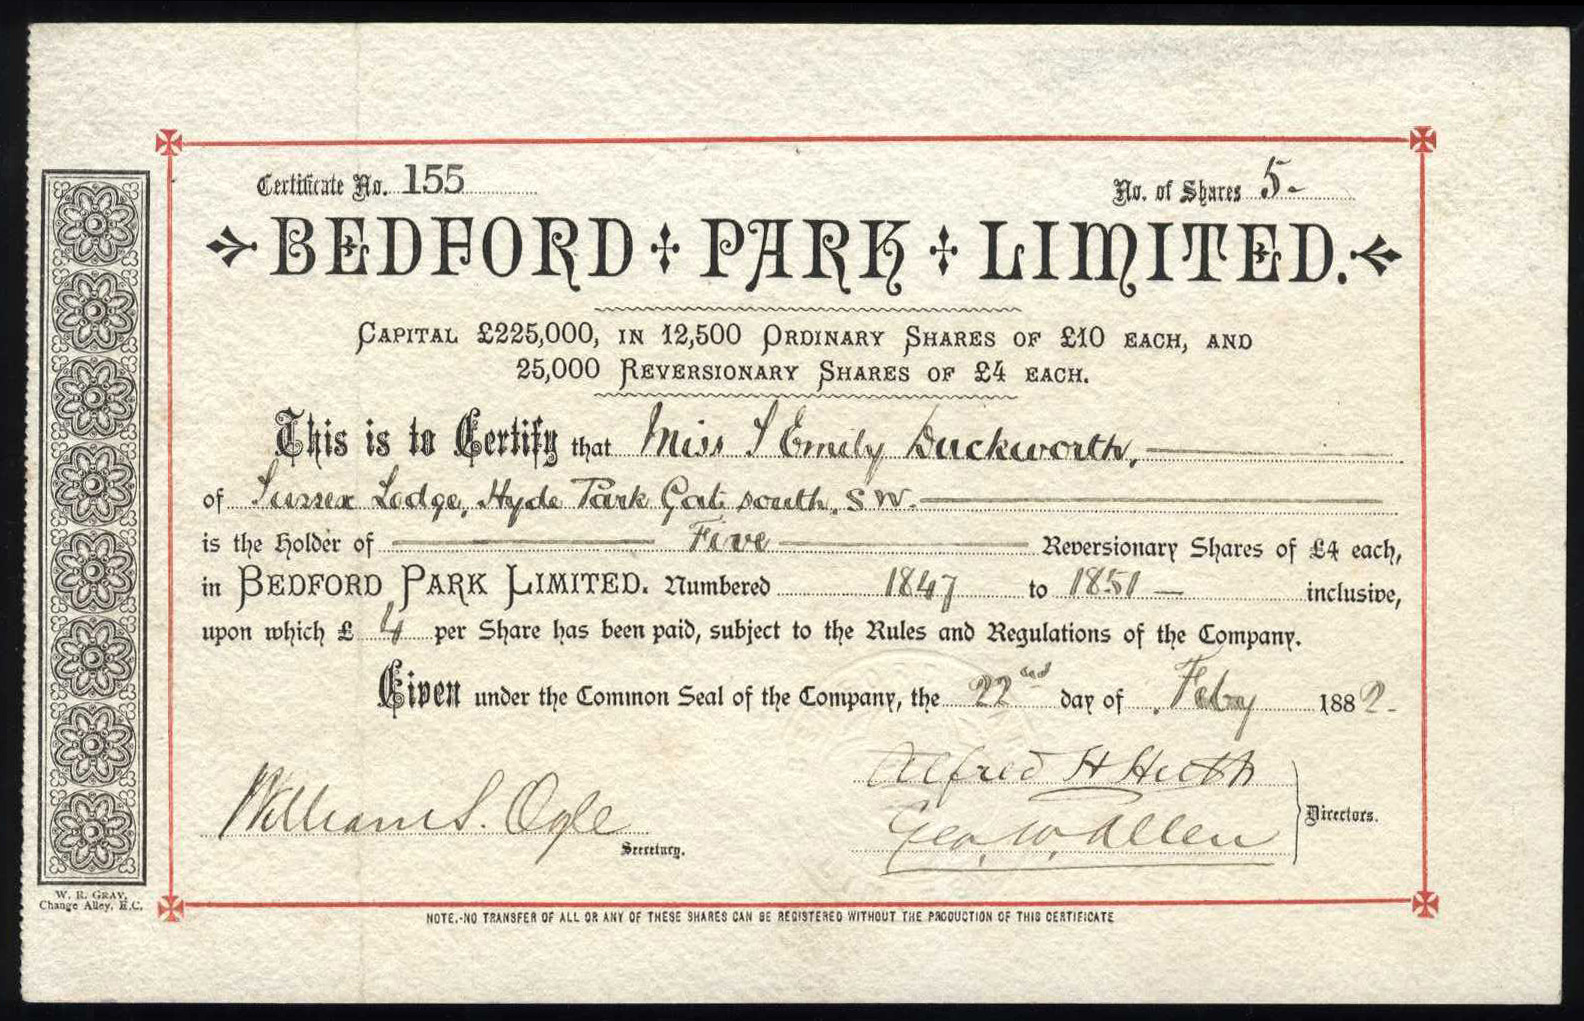 Certificate No. 155
No. of Shares 5-
BEDFORD PARK LIMITED.
CAPITAL £225,000, IN 12,500 ORDINARY SHARES OF £10 EACH, AND
25,000 REVERSIONARY SHARES OF £4 EACH.
This is to Certify that Miss S Emily Duckworth,
of Sussex Lodge, Hyde Park Gate south. S W.
is the Holder of Five Reversionary Shares of £4 each,
in BEDFORD PARK LIMITED. Numbered 1847 to 1851 — inclusive,
upon which £ 4 per Share has been paid, subject to the Rules and Regulations of the Company.
Given under the Common Seal of the Company, the 22nd day of Feby 1882.
Alfred H Huth
William S. Ogle
Geo. W. Allen
Directors.
Secretary.
W. R. GRAY,
Change Alley, E.C.
NOTE.-NO TRANSFER OF ALL OR ANY OF THESE SHARES CAN BE REGISTERED WITHOUT THE PRODUCTION OF THIS CERTIFICATE